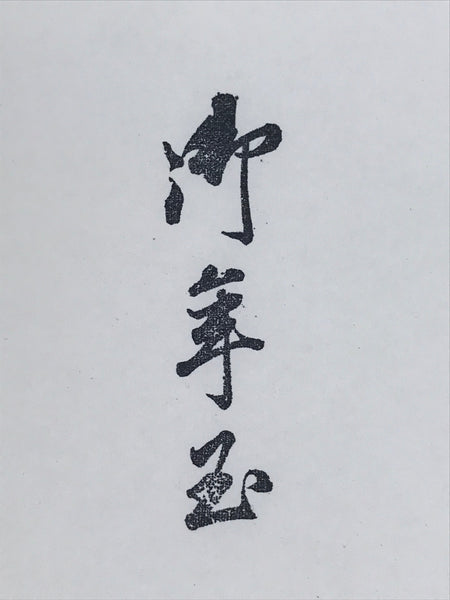 御年玉